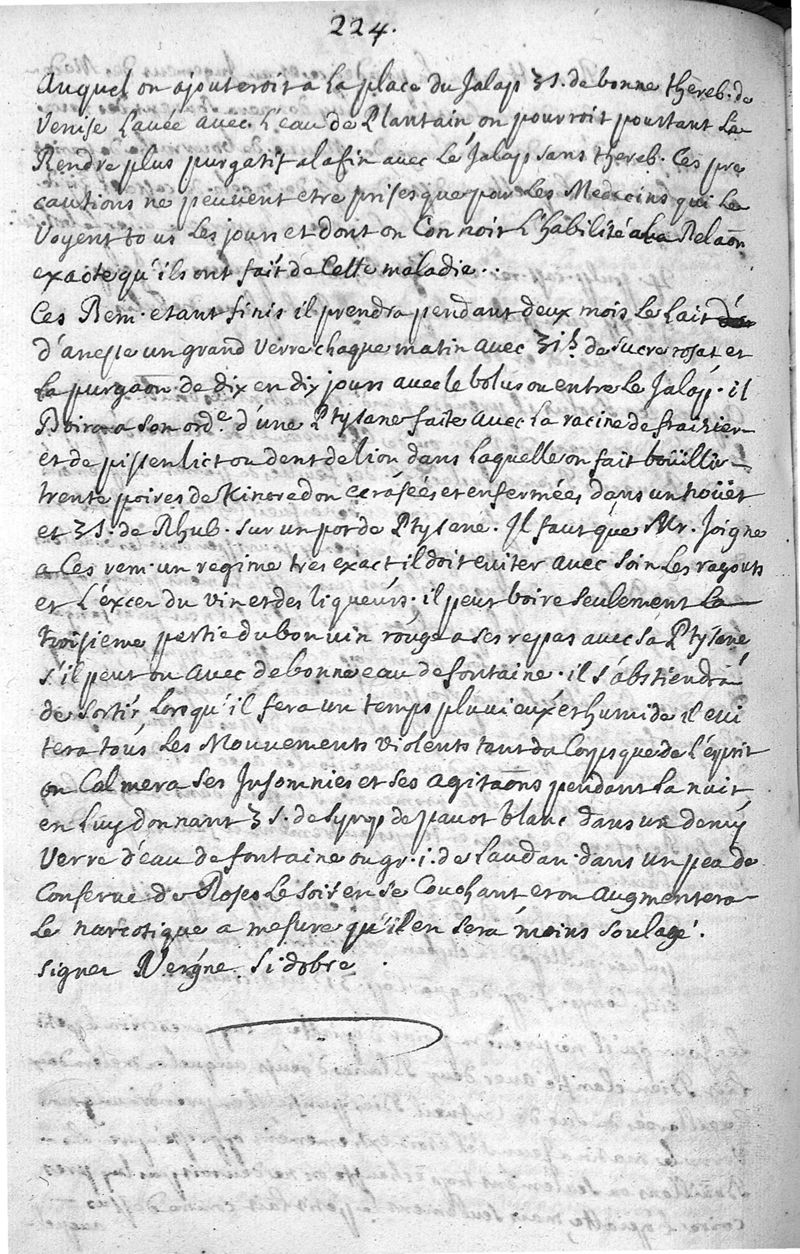 224.
auquel on ajouteroit a la place du Jalap ʒ1. de bonne thereb. de
Venise Lavée avec L'eau de Plantain on pourroit pourtant La
Rendre plus purgatif a la fin avec Le Jalap sans thereb. Ces pre
cautions ne peuvent etre prises que pour Les Medecins qui Le
Voyent tous Les jours et dont on Connoit L'habilité Relaõn
exacte qu'ils ont fait de Cette maladie..
Ces Rem. etant finis il prendra pendant deux mois Le Lait
d'anesse un grand Verre chaque matin avec de sucre rosat et
La purgaõn de dix en dix jours avec le bolus ou entre Le Jalap. il
Boira a son ord.e d'une Ptysane faite avec La racine de fraizier
et de pissenlict ou dent de lion dans Laquelle on fait boüillir
trente poires de Kinoredon ecrasées et enfermées dans un noüet
et ʒ1. de Rhub. sur un pot de Ptysane. Il faut que Mr. Joigne
a Ces rem. un regime tres exact il doit eviter avec soin Les ragouts
et L'excer du vin et des liqueurs. il peut boire seulement La
troisieme partie du bon vin rouge a ses repas avec sa Ptysane
s'il peut ou avec de bonne eau de fontaine. il s'abstiendra
de sortir Lorsqu'il fera un temps pluvieux et humide il evi
tera tous Les Mouvements violents tant du Corps que de L'esprit
on Calmera ses Insomnies et ses agitaõns pendant La nuit
en Luy donnant ʒ1. de Syrop de pavot blanc dans un demy
Verre d'eau de fontaine ou gr. i. de Laudan. dans un peu de
Conserve de Roses Le soir en se Couchant et on augmentera
Le narcotique a mesure qu'il en sera moins soulagé.
signer Vergne. Sidobre.